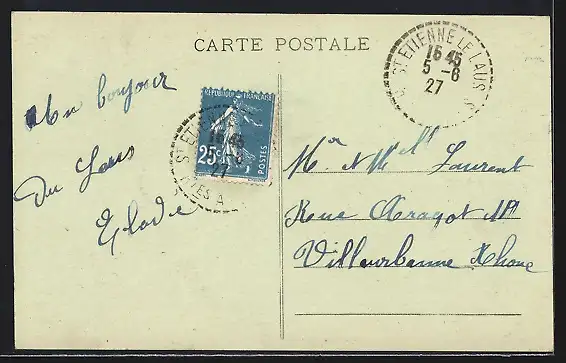 CARTE POSTALE
ST ETIENNE LE LAUS
16 45
5 - 6
27
Un bonjour
Du Laus
Elodie
REPUBLIQUE FRANÇAISE
25c
POSTES
ST ETIENNE
16 45
27
Mr et Mell Laurent
Rue Aragot
Villeurbanne Rhone